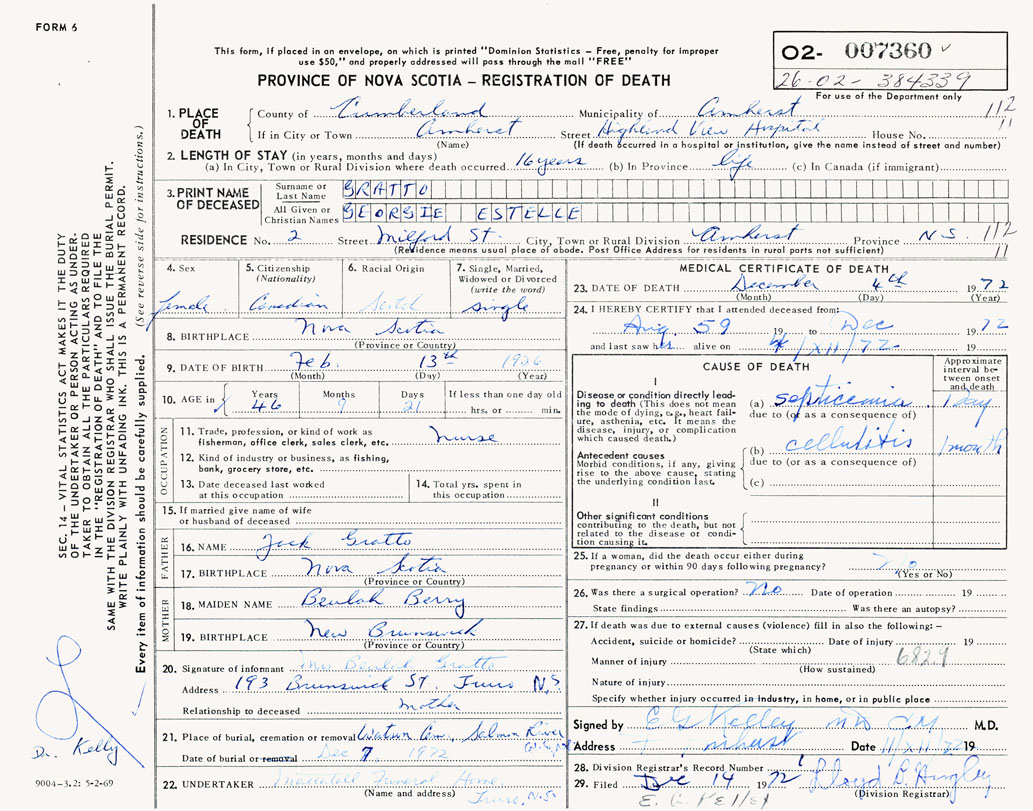 FORM 6
This form, if placed in an envelope, on which is printed "Dominion Statistics – Free, penalty for improper
use $50," and properly addressed will pass through the mail "FREE"
PROVINCE OF NOVA SCOTIA – REGISTRATION OF DEATH
02- 007360
26-02- 384339
For use of the Department only
1. PLACE OF DEATH
County of Cumberland Municipality of Amherst 112
If in City or Town Amherst Street Highland View Hospital House No. 11
(Name) (If death occurred in a hospital or institution, give the name instead of street and number)
2. LENGTH OF STAY (in years, months and days)
(a) In City, Town or Rural Division where death occurred 16 years (b) In Province life (c) In Canada (if immigrant)
3. PRINT NAME OF DECEASED
Surname or Last Name GRATTO
All Given or Christian Names GEORGIE ESTELLE
RESIDENCE No. 2 Street Milford St. City, Town or Rural Division Amherst Province N.S. 112
(Residence means usual place of abode. Post Office Address for residents in rural parts not sufficient) 11
4. Sex
female
5. Citizenship
(Nationality)
Canadian
6. Racial Origin
Scotch
7. Single, Married,
Widowed or Divorced
(write the word)
single
8. BIRTHPLACE Nova Scotia
(Province or Country)
9. DATE OF BIRTH Feb. 13th 1926
(Month) (Day) (Year)
10. AGE in
Years Months Days If less than one day old
46 9 21 hrs. or min.
OCCUPATION
11. Trade, profession, or kind of work as
fisherman, office clerk, sales clerk, etc. Nurse
12. Kind of industry or business, as fishing,
bank, grocery store, etc.
13. Date deceased last worked
at this occupation
14. Total yrs. spent in
this occupation
15. If married give name of wife
or husband of deceased
FATHER
16. NAME Jack Gratto
17. BIRTHPLACE Nova Scotia
(Province or Country)
MOTHER
18. MAIDEN NAME Beulah Berry
19. BIRTHPLACE New Brunswick
(Province or Country)
20. Signature of informant Mrs Beulah Gratto
Address 193 Brunswick St. Truro N.S.
Relationship to deceased Mother
21. Place of burial, cremation or removal Watson Cem., Salmon River
Date of burial or removal Dec 7 1972
22. UNDERTAKER Mattatall Funeral Home
(Name and address) Truro, N.S.
MEDICAL CERTIFICATE OF DEATH
23. DATE OF DEATH December 4th 1972
(Month) (Day) (Year)
24. I HEREBY CERTIFY that I attended deceased from:
Aug. 59 19 to Dec 1972
and last saw her alive on 4/XII/72 19
CAUSE OF DEATH
Approximate
interval be-
tween onset
and death
I
Disease or condition directly lead-
ing to death (This does not mean
the mode of dying, e.g., heart fail-
ure, asthenia, etc. It means the
disease, injury, or complication
which caused death.)
(a) septicemia 1 day
due to (or as a consequence of)
Antecedent causes
Morbid conditions, if any, giving
rise to the above cause, stating
the underlying condition last.
(b) cellulitis 1 month
due to (or as a consequence of)
(c)
II
Other significant conditions
contributing to the death, but not
related to the disease or condi-
tion causing it.
25. If a woman, did the death occur either during
pregnancy or within 90 days following pregnancy? No
(Yes or No)
26. Was there a surgical operation? No Date of operation 19
State findings Was there an autopsy?
27. If death was due to external causes (violence) fill in also the following: –
Accident, suicide or homicide? Date of injury 19
(State which)
Manner of injury 682.9
(How sustained)
Nature of injury
Specify whether injury occurred in industry, in home, or in public place
Signed by E G Kelley MD CM M.D.
Address Amherst Date 11/XII/72 19
28. Division Registrar's Record Number
29. Filed Dec 14 1972
(Division Registrar)
E. G. KELLEY
SEC. 14 – VITAL STATISTICS ACT MAKES IT THE DUTY
OF THE UNDERTAKER OR PERSON ACTING AS UNDER-
TAKER TO OBTAIN ALL THE PARTICULARS REQUIRED
IN THE "REGISTRATION OF DEATH" AND TO FILE THE
SAME WITH THE DIVISION REGISTRAR WHO SHALL ISSUE THE BURIAL PERMIT.
WRITE PLAINLY WITH UNFADING INK. THIS IS A PERMANENT RECORD.
Every item of information should be carefully supplied. (See reverse side for instructions.)
Dr. Kelly
9004-3.2: 5-2-69